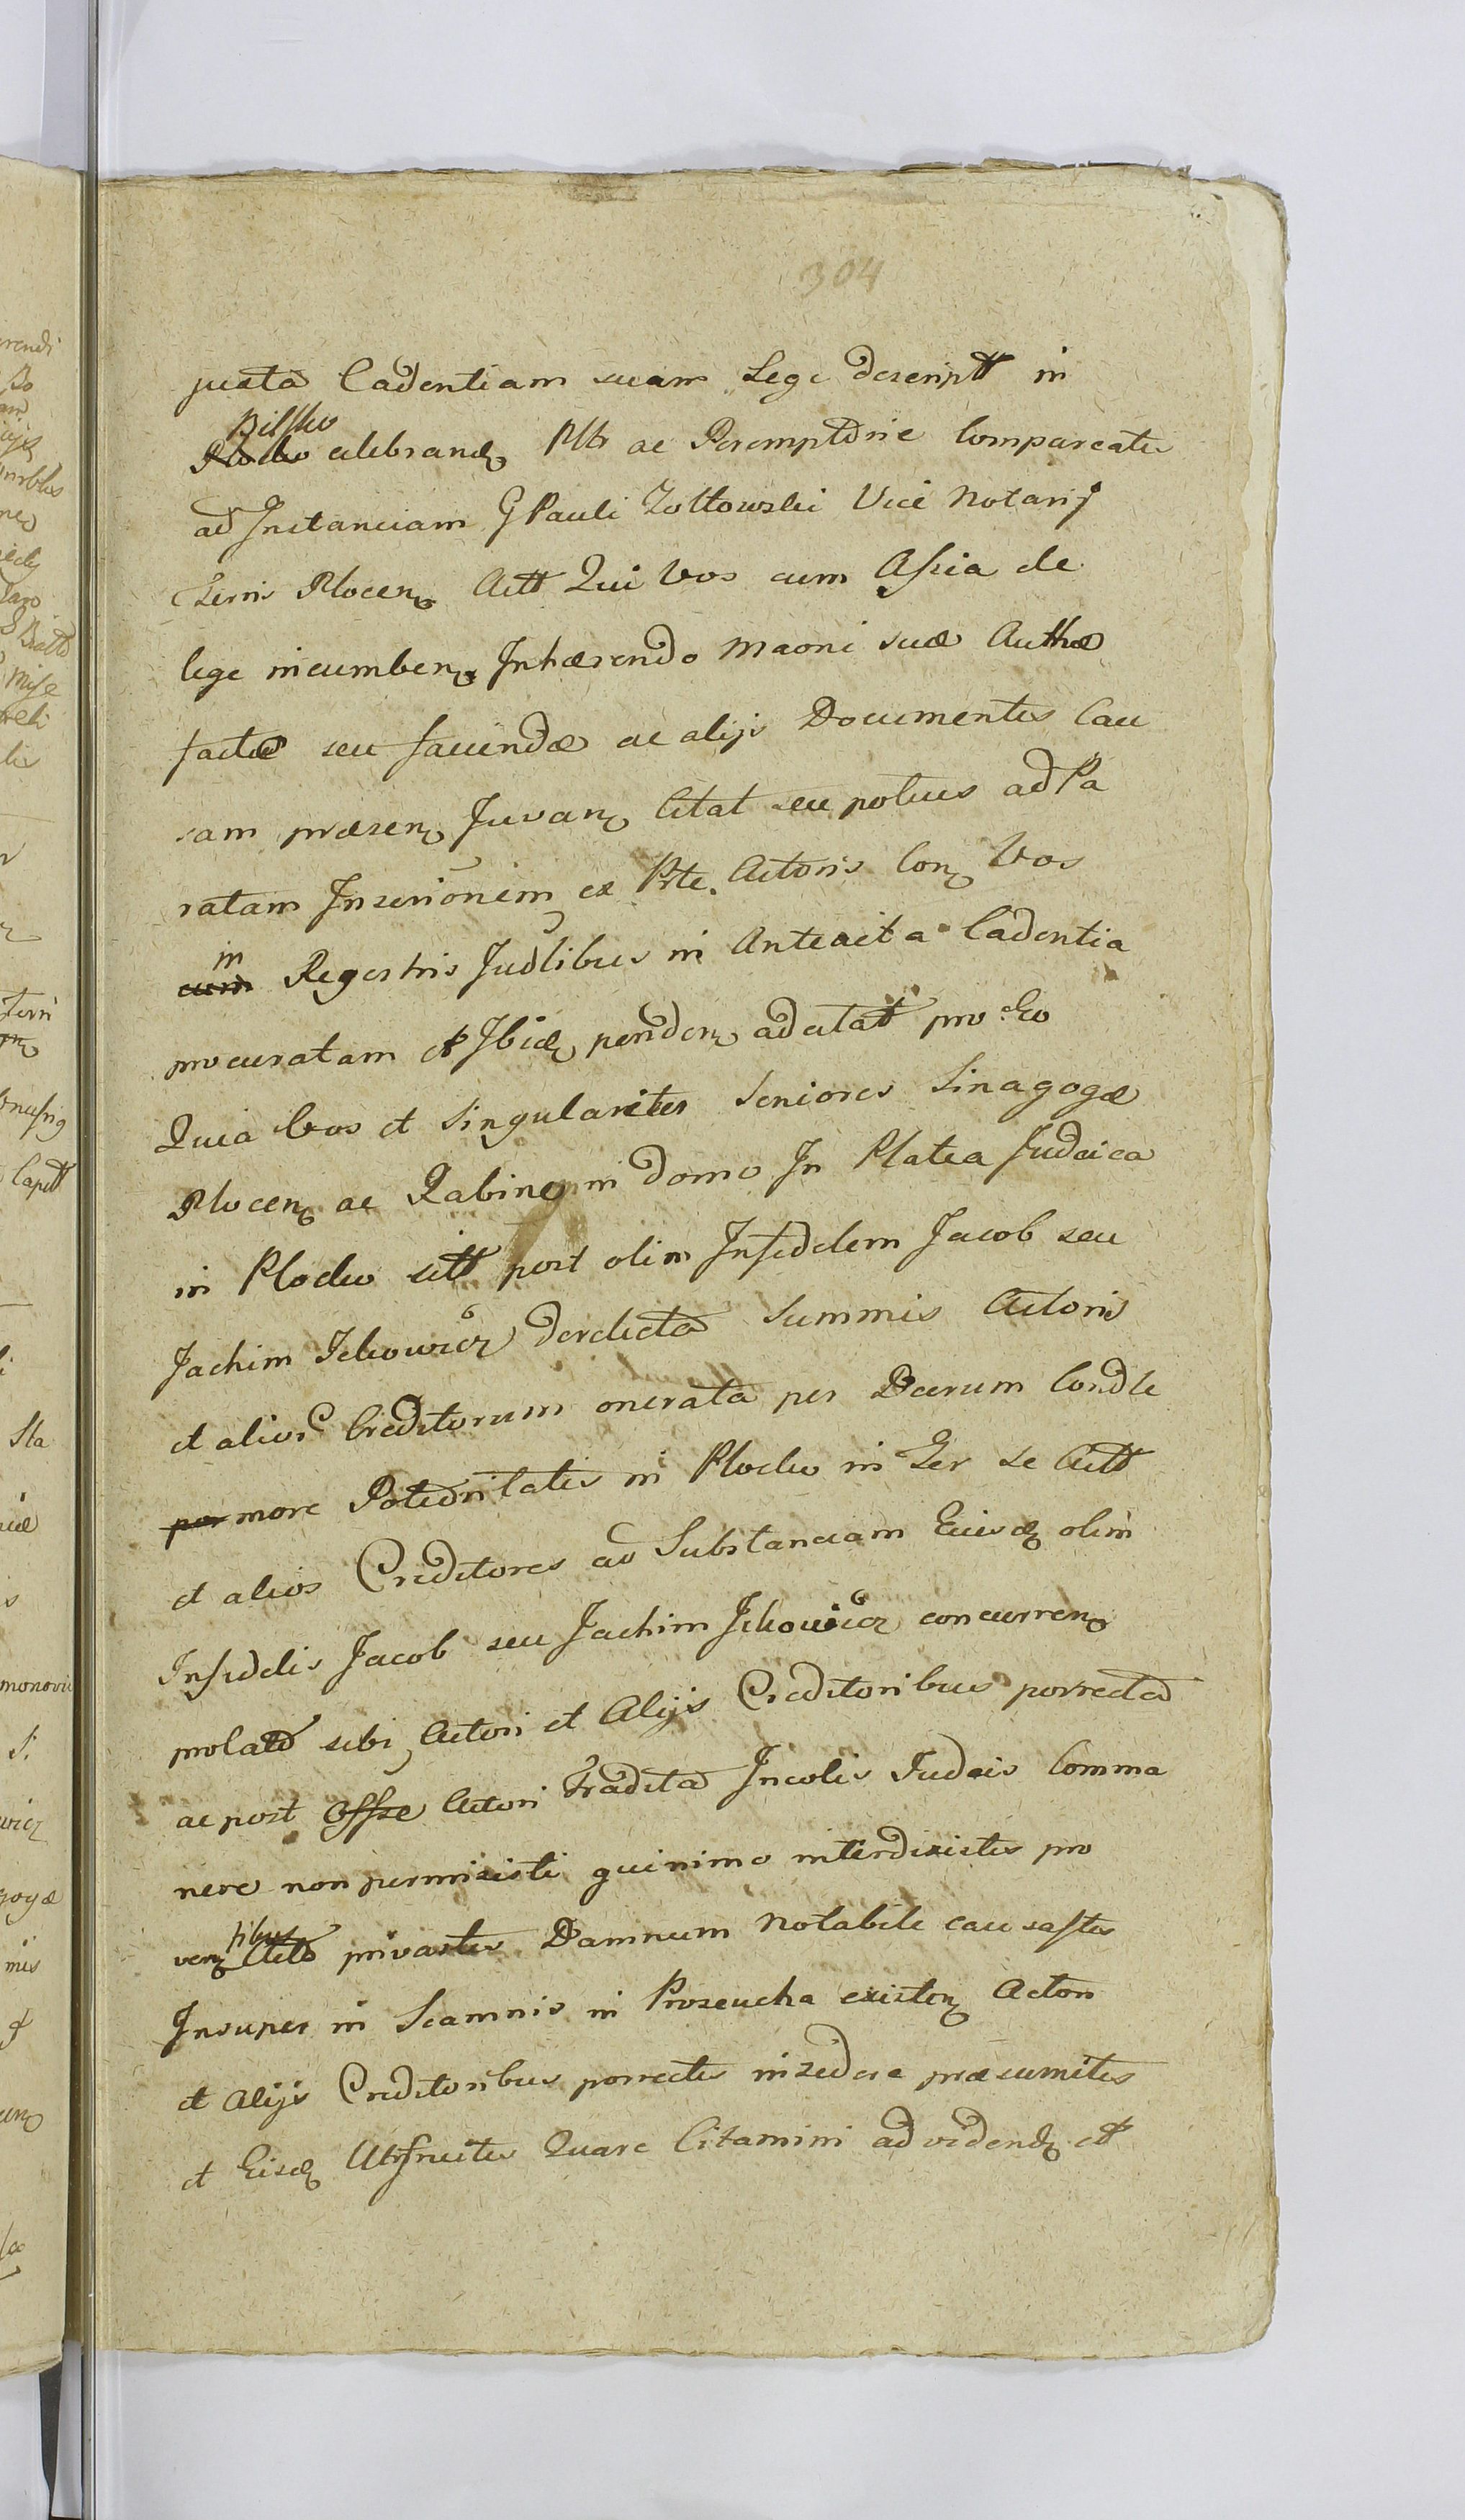 304
juxta Cadentiam suam Lege descriptt in
Bielsko
Plocko celebrand, Pltr ac Peremptorie Compareatis
ad Instanciam G Pauli Zołtowski Vice Notarij
Trrnis Plocen, Actt Qui Vos cum Assia de
lege incumben, Inhærendo Maoni suæ Authæ
factæ seu faciendæ ac alijs Documentis Cau
sam præsen, Juvan, Citat seu potius ad Pa
ratam Inscriõnem ex Prte Actoris Con, Vos
in
cum Regestris Judlibus in Anteacta Cadentia
procuratam et Ibid, penden, adcitat pro Eo
Quia Vos et Singulariter Seniores Sinagogæ
Plocen, ac Rabine in domo In Platea Judaica
in Plocko sitt post olim Infidelem Jacob seu
Jachim Ickowicz derelicta Summis Actoris
et alior Creditorum onerata per Dcerum Condle
per more Potioritatis in Plocko in Ter se Actt
et alios Creditores ad Substanciam Eiusd, olim
Infidelis Jacob seu Jachim Ickowicz concurren,
prolatt sibi Actori et Alijs Creditoribus porrecta
ac post Offse Actori Tradita Incolis Judæis Comma
nere non permisisti quinimo interdixistis pro
tibus
ven, Actt privastis Damnum Notabile causastis
Insuper in Scamnis in Proseucha existen, Actori
et Alijs Creditoribus porrectis insedere præsumitis
et Eisd, Utifruitis Quare Citamini ad vidend, et